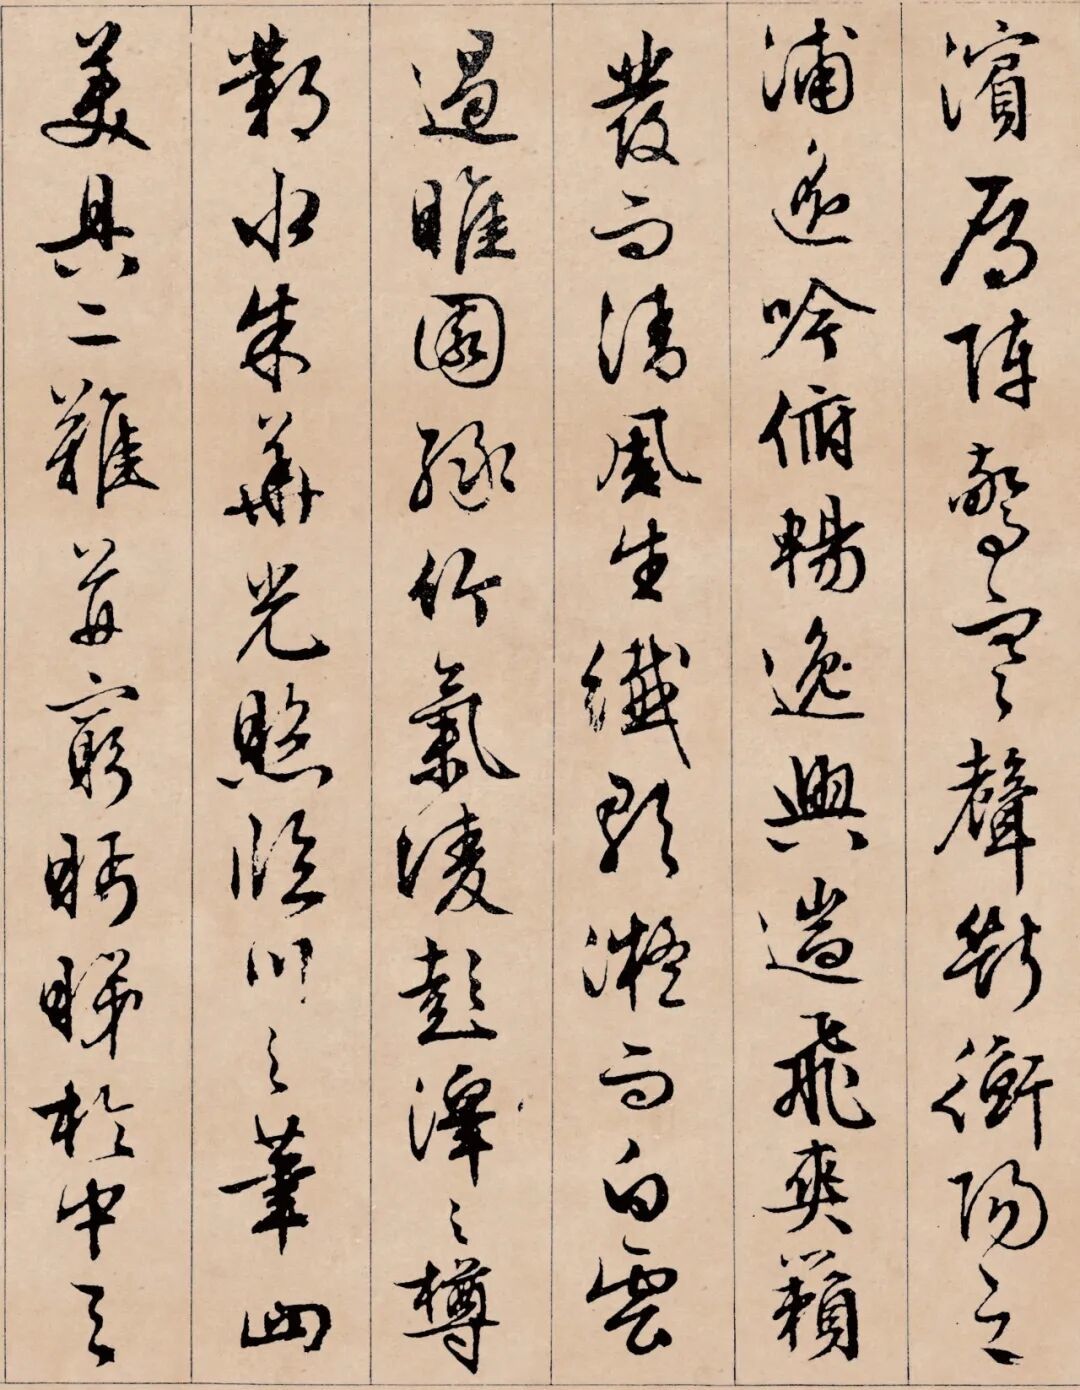 濱鴈陣驚寒聲斷衡陽之
浦遥吟俯暢逸興遄飛爽籟
發而清風生纖歌凝而白雲
遏睢園緑竹氣淩彭澤之樽
鄴水朱華光照臨川之筆四
美具二難并窮眄睇於中天